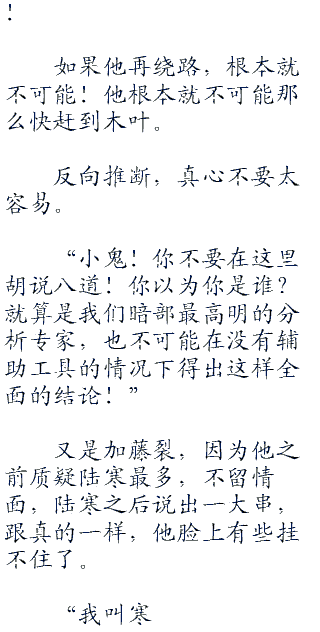 ！
如果他再绕路，根本就
不可能！他根本就不可能那
么快赶到木叶。
反向推断，真心不要太
容易。
“小鬼！你不要在这里
胡说八道！你以为你是谁？
就算是我们暗部最高明的分
析专家，也不可能在没有辅
助工具的情况下得出这样全
面的结论！”
又是加藤裂，因为他之
前质疑陆寒最多，不留情
面，陆寒之后说出一大串，
跟真的一样，他脸上有些挂
不住了。
“我叫寒